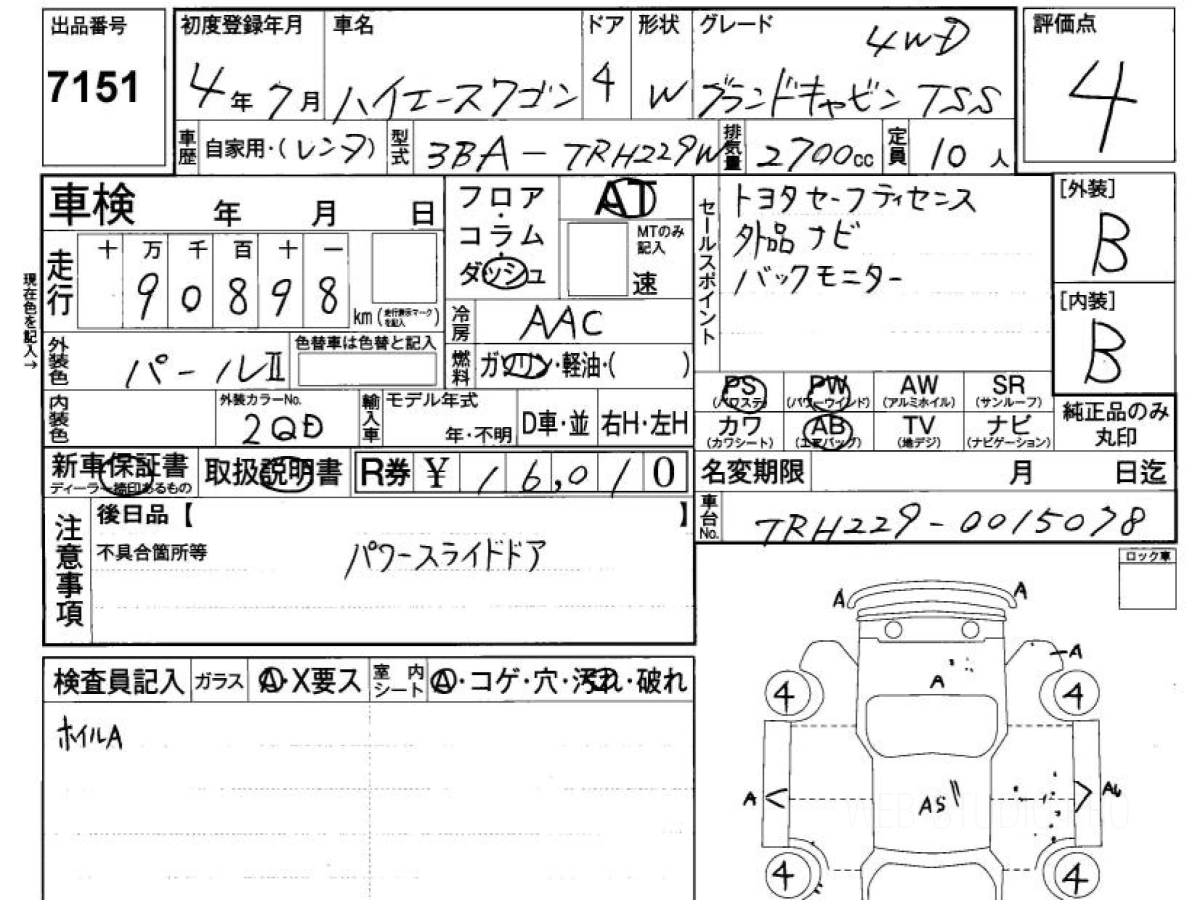 出品番号
7151
初度登録年月 車名 ドア 形状 グレード 4WD
4年7月 ハイエースワゴン 4 W グランドキャビン TSS
車歴 自家用・(レンタ) 型式 3BA-TRH229W 排気量 2700cc 定員 10人
評価点
4
車検 年 月 日
現在色を記入→
走行 十 万 千 百 十 一
90898 km (走行表示マークを記入)
フロア・コラム・ダッシュ
AT
MTのみ記入
速
冷房 AAC
燃料 ガソリン・軽油・( )
外装色 パールⅡ 色替車は色替と記入
内装色 外装カラーNo. 2QD
輸入車 モデル年式 年・不明 D車・並 右H・左H
新車保証書 取扱説明書 R券 ¥ 16,010
ディーラー捺印あるもの
セールスポイント
トヨタセーフティセンス
外品ナビ
バックモニター
[外装]
B
[内装]
B
PS PW AW SR
(パワステ) (パワーウインド) (アルミホイル) (サンルーフ)
カワ AB TV ナビ
(カワシート) (エアバッグ) (地デジ) (ナビゲーション)
純正品のみ丸印
名変期限 月 日迄
車台No. TRH229-0015078
注意事項
後日品【 】
不具合箇所等 パワースライドドア
ロック車
検査員記入 ガラス A・X要ス 室内シート A・コゲ・穴・汚れ・破れ
ホイルA
A A
A
A
4 4
A AS A
4 4
WEB STUDIO